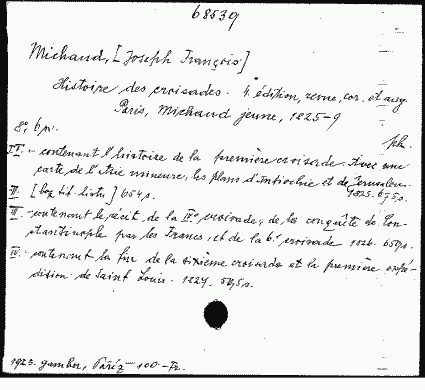 68539
Michaud, [Joseph François]
Histoire des croisades. 4. édition, revue, cor. et aug.
Paris, Michaud jeune, 1825-9
8°, 6 
I. - contenant l'histoire de la première croisade. Avec une
carte de l'Asie mineure, les plans d'Antiochie et de Jerusalem.
1825. 675 s.
II. [bez tit. listu] 654 s.
III. - contenant le récit de la IVe croisade, de la conquête de Con-
stantinople par les Francs, et de la 6e croisade 1826.
IV. - contenant la fin de la sixième croisade et la première expé-
dition de Saint Louis. 1827. 595 s.
1923. Gamber, Paříž - 100 - Fr.